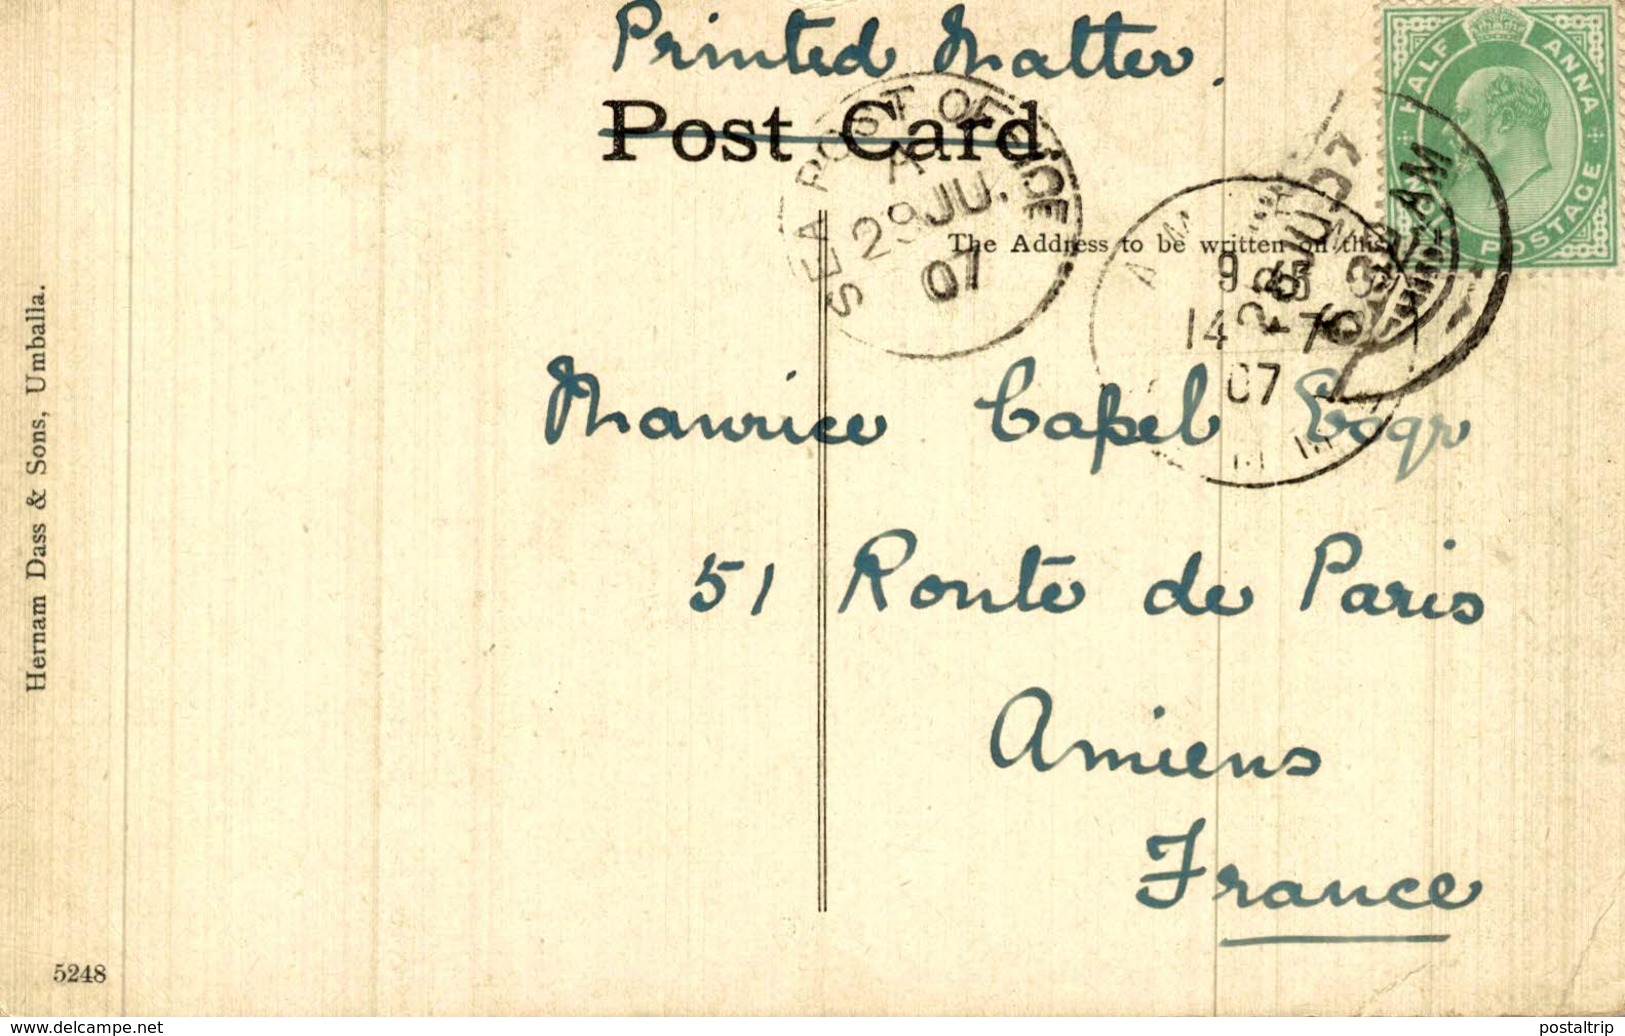 Printed Matter.
Post Card.
HALF ANNA
POSTAGE
SEA POST OFFICE
A
29 JU.
07
The Address to be written on this
9 45
14 - 7
07
Maurice Capel Esqr
51 Route de Paris
Amiens
France
Hernam Dass & Sons, Umballa.
5248
www.delcampe.net
postaltrip